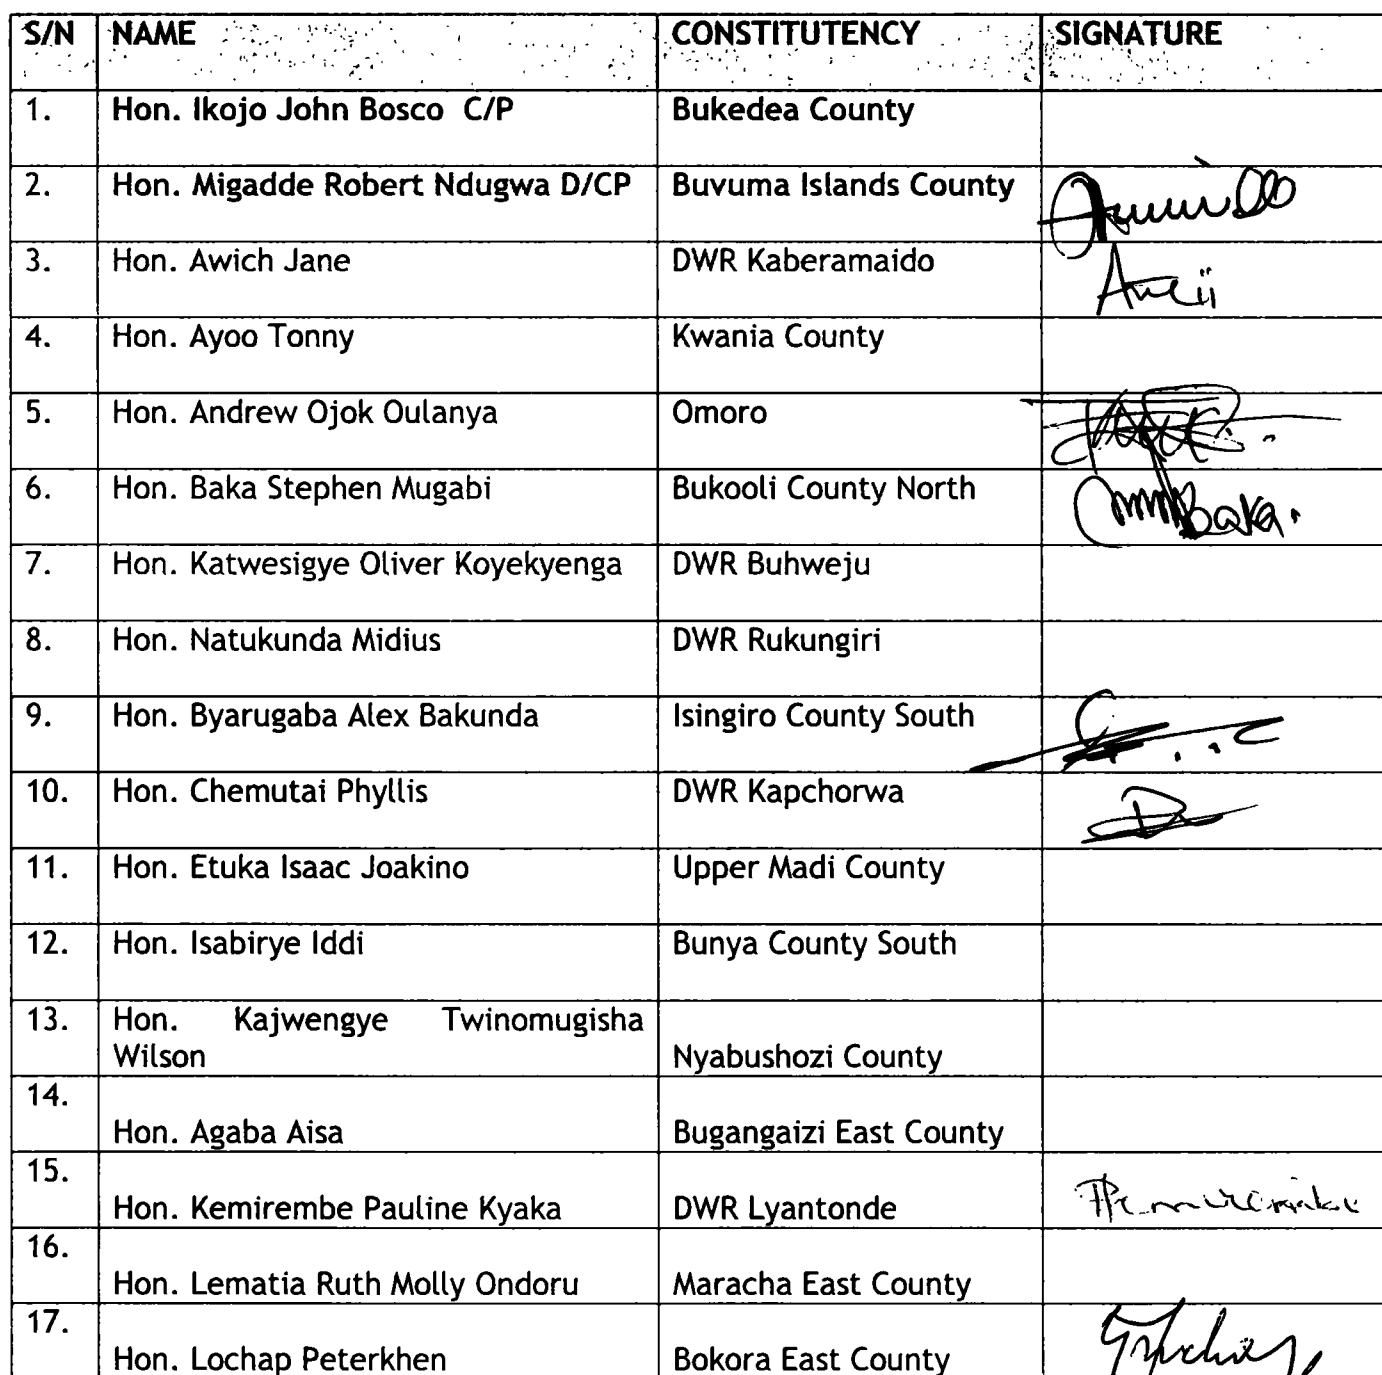 S/N NAME CONSTITUTENCY SIGNATURE
1. Hon. Ikojo John Bosco C/P Bukedea County
2. Hon. Migadde Robert Ndugwa D/CP Buvuma Islands County
3. Hon. Awich Jane DWR Kaberamaido
4. Hon. Ayoo Tonny Kwania County
5. Hon. Andrew Ojok Oulanya Omoro
6. Hon. Baka Stephen Mugabi Bukooli County North baka.
7. Hon. Katwesigye Oliver Koyekyenga DWR Buhweju
8. Hon. Natukunda Midius DWR Rukungiri
9. Hon. Byarugaba Alex Bakunda Isingiro County South
10. Hon. Chemutai Phyllis DWR Kapchorwa
11. Hon. Etuka Isaac Joakino Upper Madi County
12. Hon. Isabirye Iddi Bunya County South
13. Hon. Kajwengye Twinomugisha
Wilson Nyabushozi County
14.
Hon. Agaba Aisa Bugangaizi East County
15.
Hon. Kemirembe Pauline Kyaka DWR Lyantonde
16.
Hon. Lematia Ruth Molly Ondoru Maracha East County
17.
Hon. Lochap Peterkhen Bokora East County